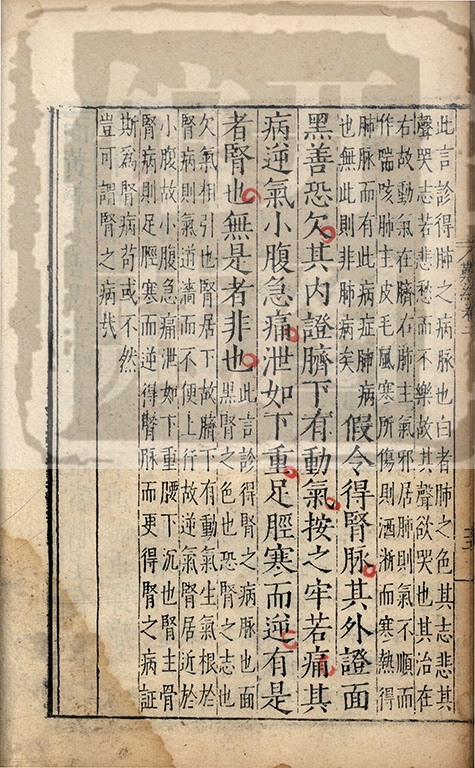 此言診得肺之病脈也白者肺之色其志悲其
聲哭志若悲愁而不樂故其聲欲哭也其治在
右故動氣在臍右肺主氣邪居肺則氣不順而
作喘咳肺主皮毛風寒所傷則洒淅而寒熱得
肺脈而有此病症肺病
也無此則非肺病矣
假令得腎脈其外證面
黑善恐欠其內證臍下有動氣按之牢若痛其
病逆氣小腹急痛泄如下重足脛寒而逆有是
者腎也無是者非也
此言診得腎之病脈也面
黑腎之色也恐腎之志也
欠氣相引也腎居下故臍下有動氣生氣根於
腎病則氣道濇而不便上行故逆氣腎居近於
小腹故小腹急痛泄如下重腰下沉也腎主骨
腎病則足脛寒而逆得腎脈而更得腎之病証
斯為腎病苟或不然
豈可謂腎之病哉